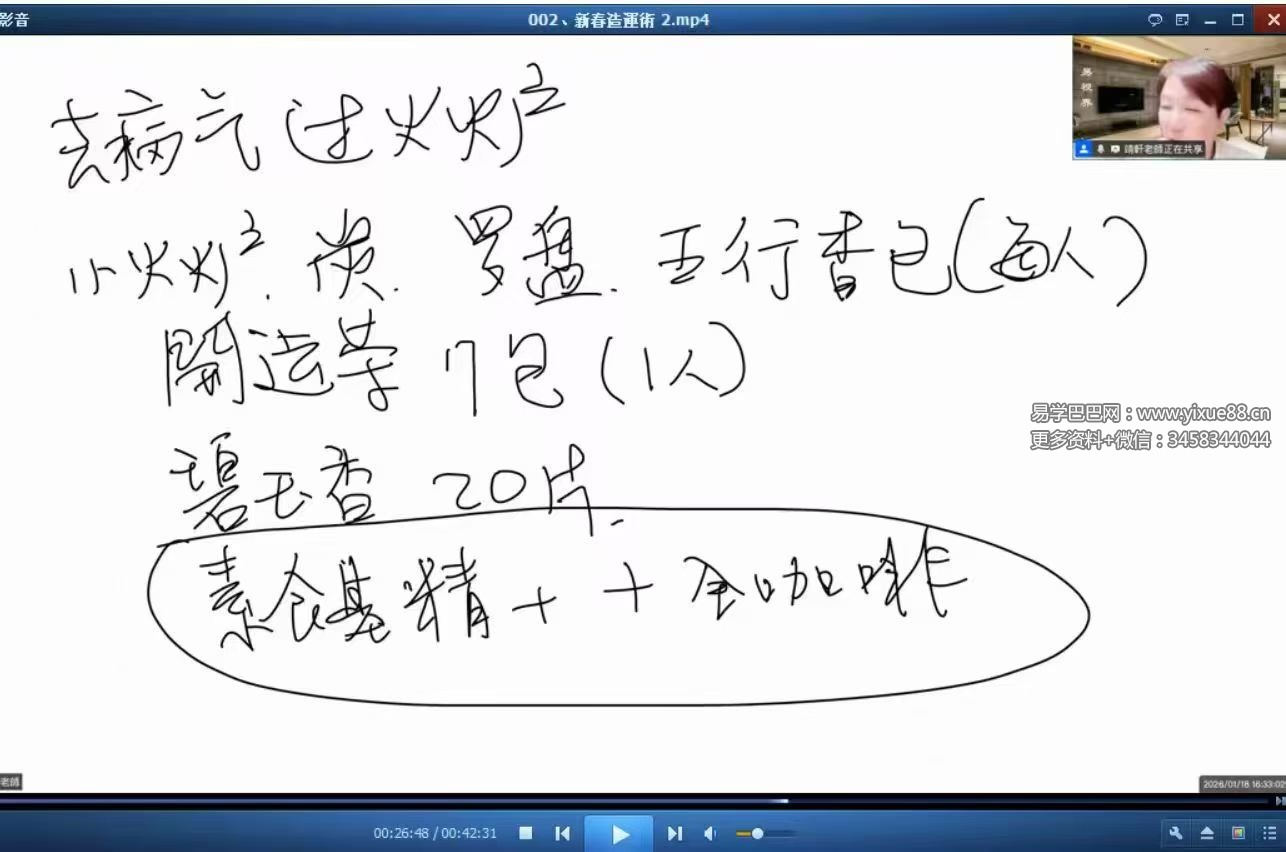 影音
002、新春造運術 2.mp4
去病气 过火炉
易視界
靖軒老師正在共享
小火炉. 炭. 罗盘. 五行香包(每人)
開运茶 7包(1人)
易学巴巴网：www.yixue88.cn
更多资料+微信：3458344044
碧玉香 20片.
素食基精+ + 金咖啡
老師
2026/01/18 16:33:02
00:26:48 / 00:42:31